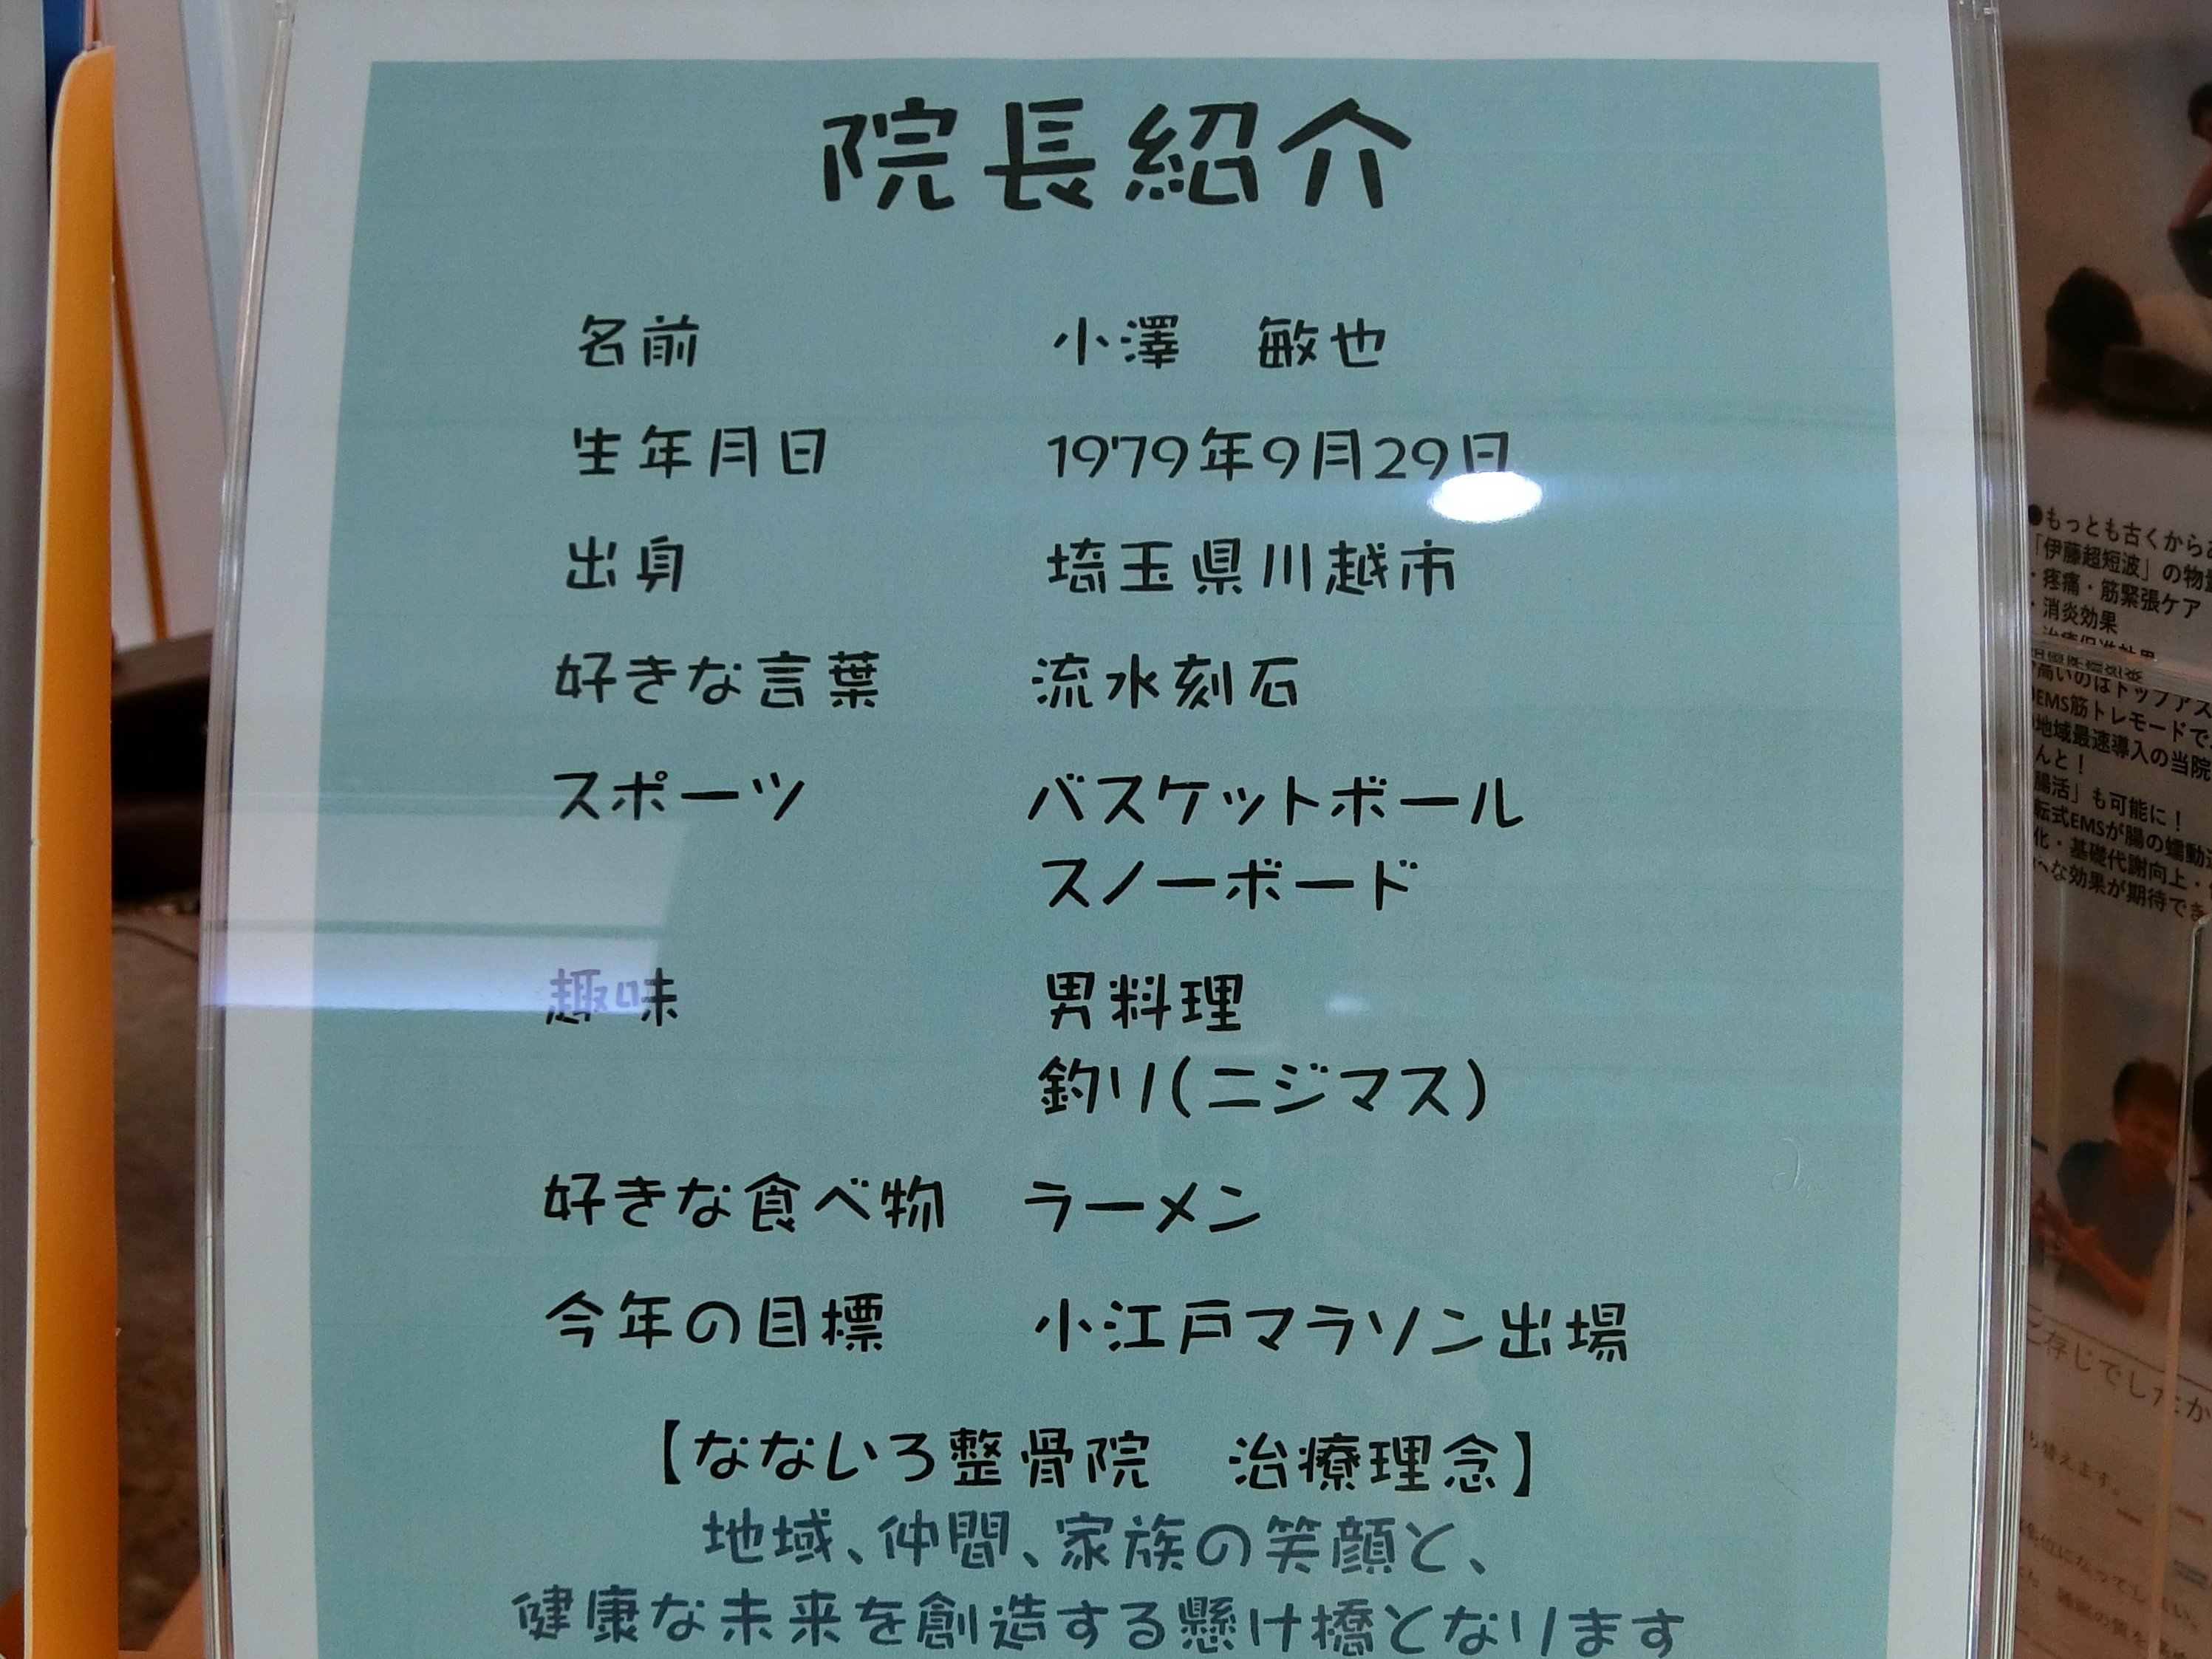 院長紹介
名前 小澤 敏也
生年月日 1979年9月29日
出身 埼玉県川越市
好きな言葉 流水刻石
スポーツ バスケットボール
スノーボード
趣味 男料理
釣り(ニジマス)
好きな食べ物 ラーメン
今年の目標 小江戸マラソン出場
【なないろ整骨院 治療理念】
地域、仲間、家族の笑顔と、
健康な未来を創造する懸け橋となります
●もっとも古くから
「伊藤超短波」の物
・疼痛・筋緊張ケア
・消炎効果
高いのはトップアス
EMS筋トレモードで
地域最速導入の当院
んと！
腸活」も可能に！
転式EMSが腸の蠕動
化・基礎代謝向上・
な効果が期待でき
ご存じでしたか